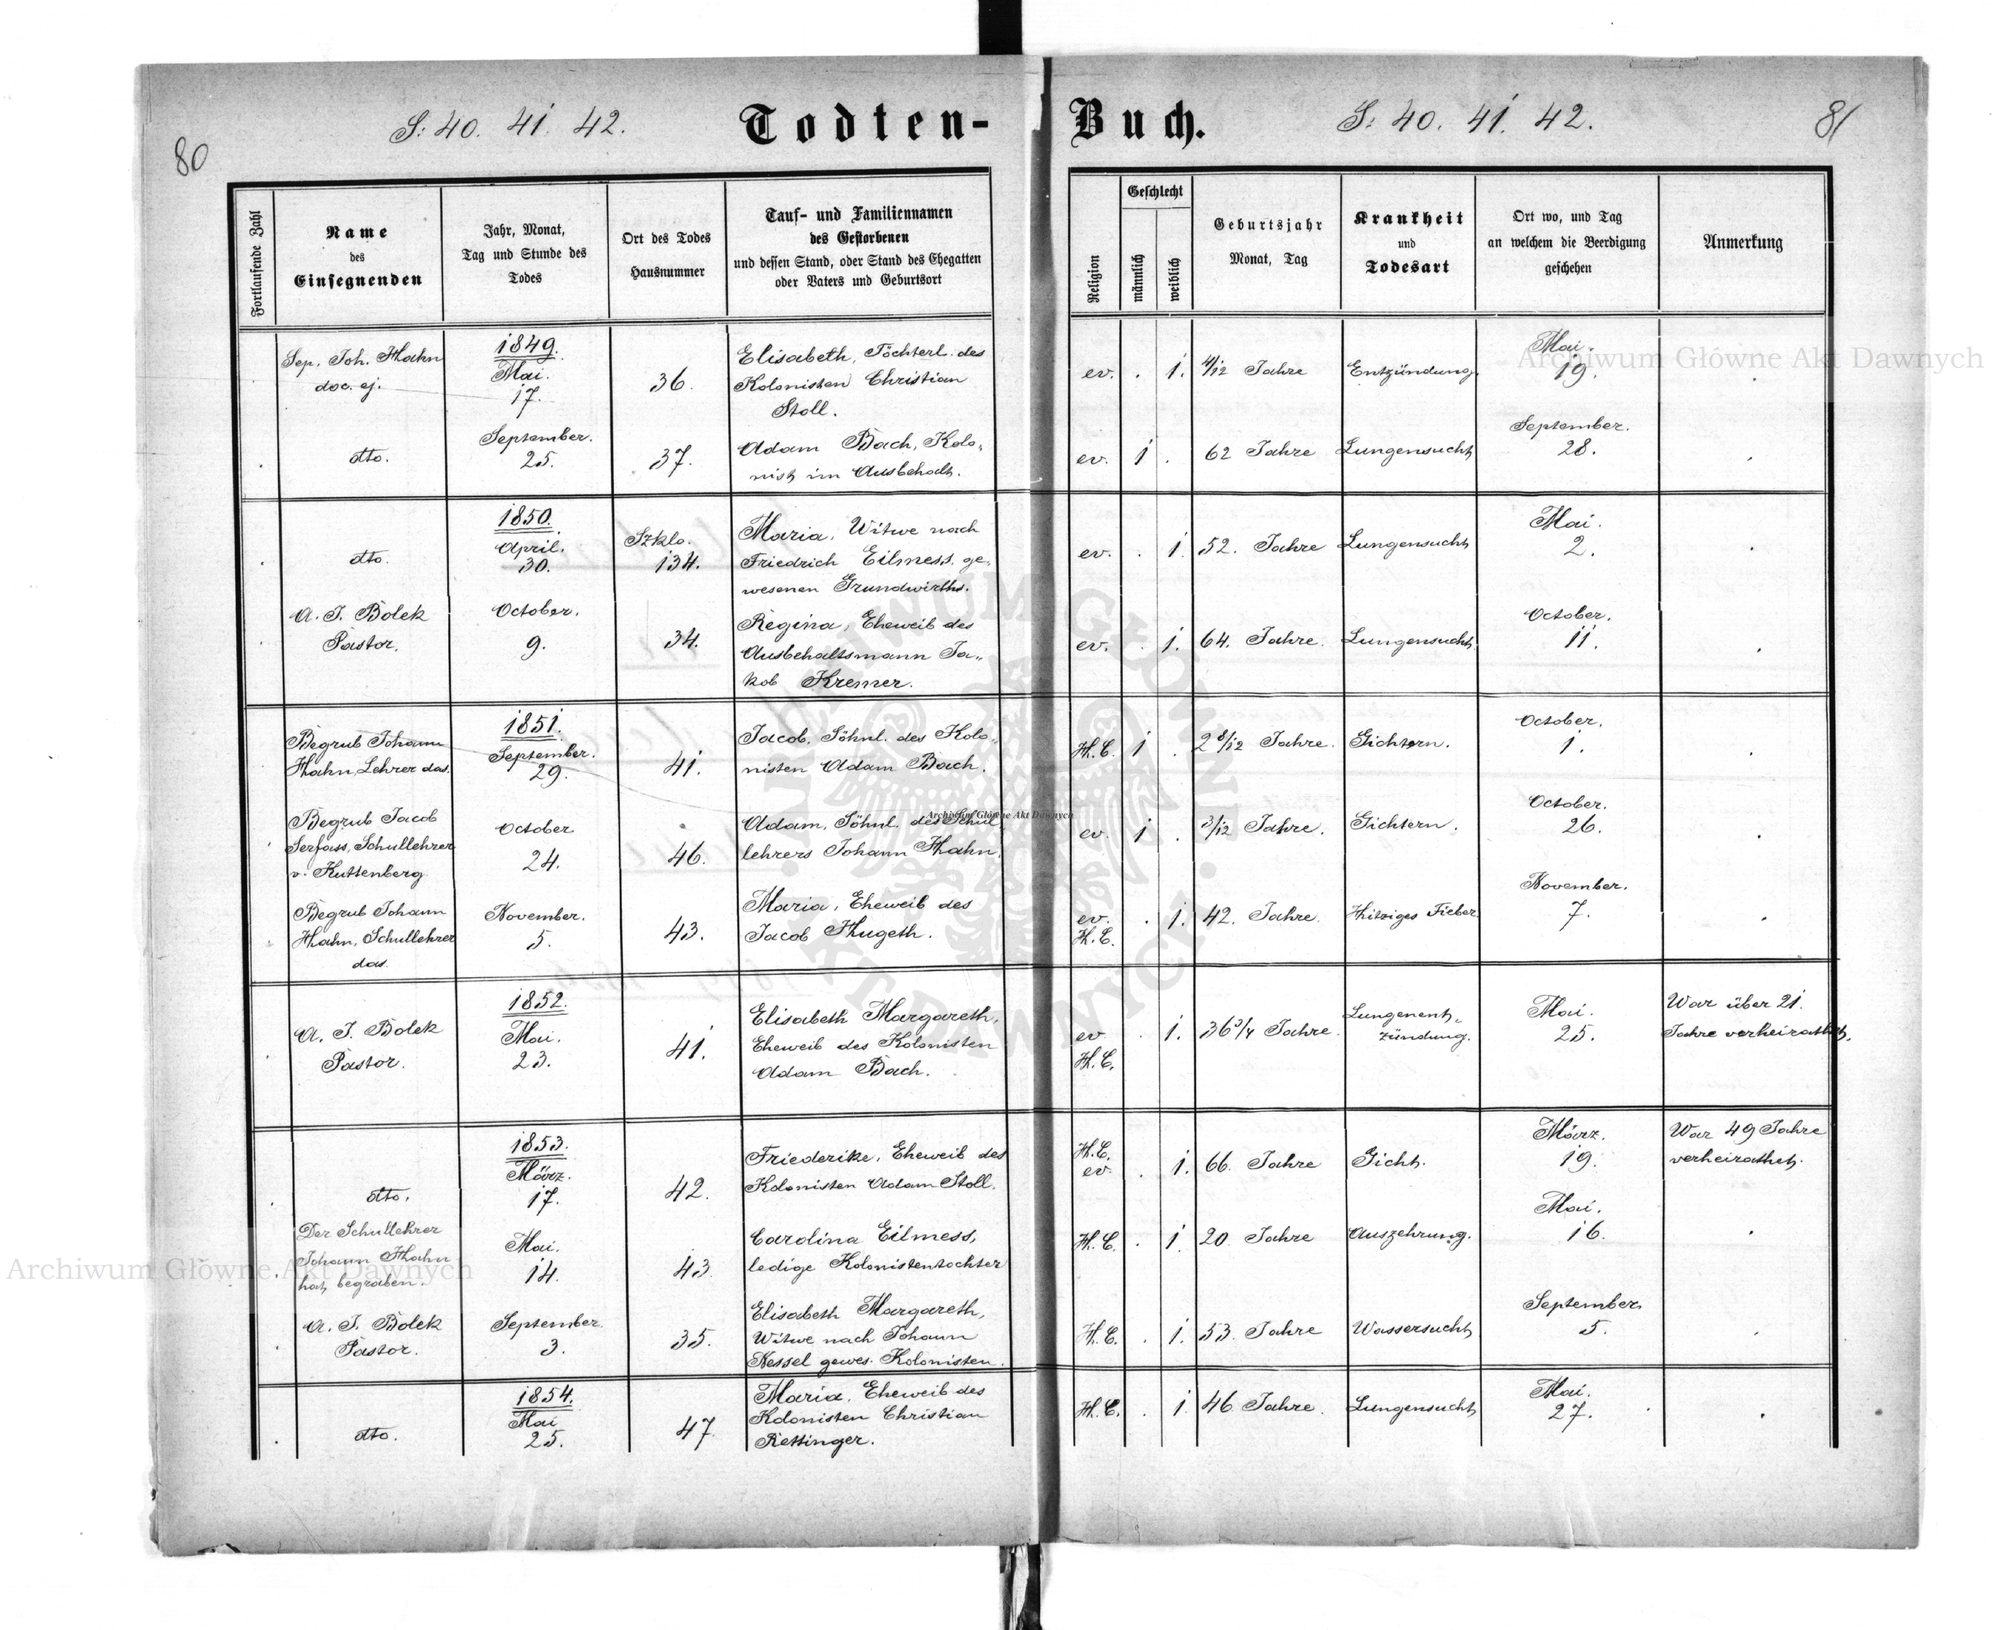 S: 40. 41. 42.
Todten-
Buch.
S: 40. 41. 42.
80
81
Fortlaufende Zahl
Name
des
Einsegnenden
Jahr, Monat,
Tag und Stunde des
Todes
Ort des Todes
Hausnummer
Tauf- und Familiennamen
des Gestorbenen
und dessen Stand, oder Stand des Ehegatten
oder Vaters und Geburtsort
Religion
Geschlecht
männlich
weiblich
Geburtsjahr
Monat, Tag
Krankheit
und
Todesart
Ort wo, und Tag
an welchem die Beerdigung
geschehen
Anmerkung
Sep. Joh. Hahn
doc. ej.
1849.
Mai.
17.
36.
Elisabeth, Töchterl. des
Kolonisten Christian
Stoll.
ev. . 1.
4/12 Jahre
Entzündung.
Mai.
19.
dto.
September.
25.
37.
Adam Bach, Kolo-
nist im Ausbehalt.
ev. 1 .
62 Jahre
Lungensucht
September.
28.
dto.
1850.
April.
30.
Szklo.
134.
Maria, Witwe nach
Friedrich Eilmess, ge-
wesenen Grundwirths.
ev. . 1
52. Jahre
Lungensucht
Mai.
2.
A. J. Bolek
Pastor.
October.
9.
34.
Regina, Eheweib des
Ausbehaltsmann Ja-
kob Kremer.
ev. . 1.
64. Jahre.
Lungensucht.
October.
11.
Begrub Johann
Hahn, Lehrer das.
1851.
September.
29.
41.
Jacob, Söhnl. des Kolo-
nisten Adam Bach.
H.C. 1 .
2 8/12 Jahre.
Gichtern.
October.
1.
Begrub Jacob
Serfass, Schullehrer
v. Kuttenberg
October
24.
46.
Adam, Söhnl. des Schul
lehrers Johann Hahn.
ev. 1 .
3/12 Jahre.
Gichtern.
October.
26.
Begrub Johann
Hahn, Schullehrer
das.
November.
5.
43.
Maria, Eheweib des
Jacob Hugeth.
ev.
H.C.
. 1.
42. Jahre.
Hitziges Fieber
November.
7.
A. J. Bolek
Pastor.
1852.
Mai.
23.
41.
Elisabeth Margareth,
Eheweib des Kolonisten
Adam Bach.
ev
H.C.
. 1.
36 3/4 Jahre.
Lungenent-
zündung.
Mai.
25.
War über 21.
Jahre verheirathet.
dto.
1853.
März.
17.
42.
Friederike, Eheweib des
Kolonisten Adam Stoll.
H.C.
ev.
. 1.
66. Jahre
Gicht.
März.
19.
War 49 Jahre
verheirathet.
Der Schullehrer
Johann Hahn
hat begraben.
Mai.
14.
43
Carolina Eilmess,
ledige Kolonistentochter
H.C. . 1.
20 Jahre
Auszehrung.
Mai.
16.
A. J. Bolek
Pastor.
September
3.
35.
Elisabeth Margareth,
Witwe nach Johann
Nessel gewes. Kolonisten.
H.C. . 1.
53. Jahre
Wassersucht
September.
5.
dto.
1854.
Mai
25.
47
Maria, Eheweib des
Kolonisten Christian
Rettinger.
H.C. . 1
46 Jahre.
Lungensucht
Mai.
27.
Archiwum Główne Akt Dawnych
Archiwum Główne Akt Dawnych
Archiwum Główne Akt Dawnych
ARCHIWUM GŁÓWNE AKT DAWNYCH